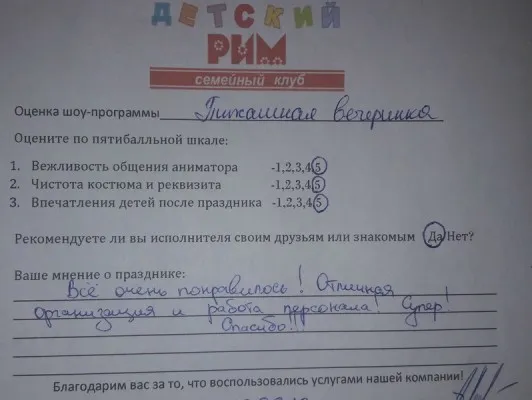 ДЕТСКИЙ
РИМ
семейный клуб
Оценка шоу-программы Пижамная вечеринка
Оцените по пятибалльной шкале:
1. Вежливость общения аниматора -1,2,3,4,5
2. Чистота костюма и реквизита -1,2,3,4,5
3. Впечатления детей после праздника -1,2,3,4,5
Рекомендуете ли вы исполнителя своим друзьям или знакомым Да/Нет?
Ваше мнение о празднике:
Всё очень понравилось! Отличная
организация и работа персонала! Супер!
Спасибо!!
Благодарим вас за то, что воспользовались услугами нашей компании!